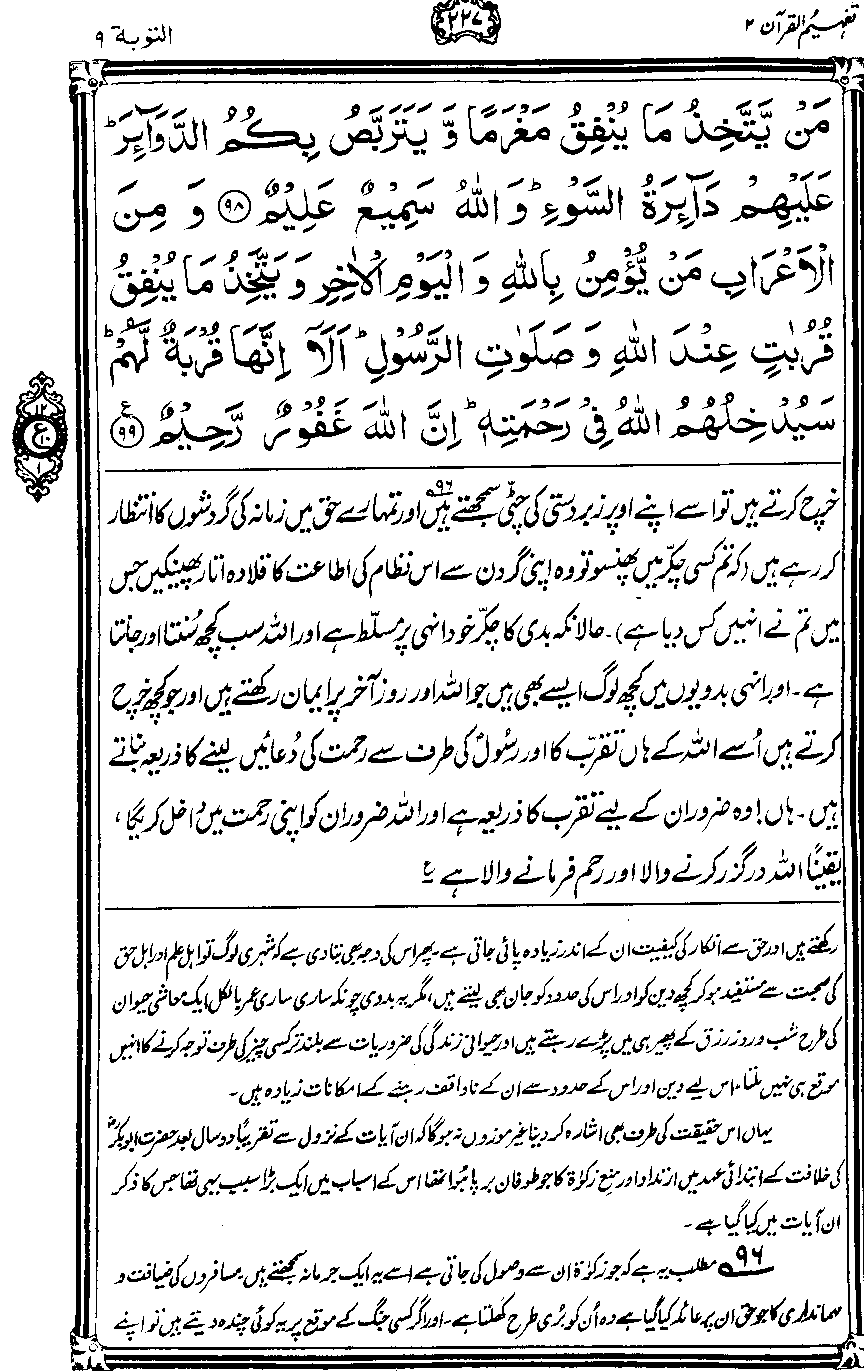 تفہیم القرآن ۲
۲۲۷
التوبة ۹
مَنْ يَّتَّخِذُ مَا يُنْفِقُ مَغْرَمًا وَّ يَتَرَبَّصُ بِكُمُ الدَّوَآئِرَ ؕ
عَلَيْهِمْ دَآئِرَةُ السَّوْءِ ؕ وَ اللّٰهُ سَمِيْعٌ عَلِيْمٌ ۹۸ وَ مِنَ
الْاَعْرَابِ مَنْ يُّؤْمِنُ بِاللّٰهِ وَ الْيَوْمِ الْاٰخِرِ وَ يَتَّخِذُ مَا يُنْفِقُ
قُرُبٰتٍ عِنْدَ اللّٰهِ وَ صَلَوٰتِ الرَّسُوْلِ ؕ اَلَاۤ اِنَّهَا قُرْبَةٌ لَّهُمْ ؕ
سَيُدْخِلُهُمُ اللّٰهُ فِيْ رَحْمَتِهٖ ؕ اِنَّ اللّٰهَ غَفُوْرٌ رَّحِيْمٌ ۹۹ ع
۱۲
ع
۱۰
۱
خرچ کرتے ہیں تو اسے اپنے اوپر زبردستی کی چٹی سمجھتے ہیں۹۶ اور تمہارے حق میں زمانہ کی گردشوں کا انتظار
کر رہے ہیں (کہ تم کسی چکّر میں پھنسو تو وہ اپنی گردن سے اس نظام کی اطاعت کا قلادہ اتار پھینکیں جس
میں تم نے انہیں کس دیا ہے)۔ حالانکہ بدی کا چکّر خود انہی پر مسلّط ہے اور اللہ سب کچھ سُنتا اور جانتا
ہے۔ اور انہی بدویوں میں کچھ لوگ ایسے بھی ہیں جو اللہ اور روز آخر پر ایمان رکھتے ہیں اور جو کچھ خرچ
کرتے ہیں اُسے اللہ کے ہاں تقرّب کا اور رسُولؐ کی طرف سے رحمت کی دُعائیں لینے کا ذریعہ بناتے
ہیں۔ ہاں! وہ ضرور ان کے لیے تقرب کا ذریعہ ہے اور اللہ ضرور ان کو اپنی رحمت میں داخل کریگا،
یقینًا اللہ درگزر کرنے والا اور رحم فرمانے والا ہے ؏
رکھتے ہیں اور حق سے انکار کی کیفیت ان کے اندر زیادہ پائی جاتی ہے۔ پھر اس کی وجہ بھی بتادی ہے کہ شہری لوگ تو اہل علم اور اہل حق
کی صحبت سے مستفید ہو کر کچھ دین کو اور اس کی حدود کو جان بھی لیتے ہیں، مگر یہ بدوی چونکہ ساری ساری عمر بالکل ایک معاشی حیوان
کی طرح شب و روز رزق کے پھیر ہی میں پڑے رہتے ہیں اور حیوانی زندگی کی ضروریات سے بلند تر کسی چیز کی طرف توجہ کرنے کا انہیں
موقع ہی نہیں ملتا، اس لیے دین اور اس کے حدود سے ان کے ناواقف رہنے کے امکانات زیادہ ہیں۔
یہاں اس حقیقت کی طرف بھی اشارہ کر دینا غیر موزوں نہ ہوگا کہ ان آیات کے نزول سے تقریبًا دو سال بعد حضرت ابوبکرؓ
کی خلافت کے ابتدائی عہد میں ارتداد اور منع زکوٰۃ کا جو طوفان برپا ہُوا تھا اس کے اسباب میں ایک بڑا سبب یہی تھا جس کا ذکر
ان آیات میں کیا گیا ہے۔
۹۶ مطلب یہ ہے کہ جو زکوٰۃ ان سے وصول کی جاتی ہے اسے یہ ایک جرمانہ سمجھتے ہیں۔ مسافروں کی ضیافت و
مہمانداری کا جو حق ان پر عائد کیا گیا ہے وہ اُن کو بُری طرح کھلتا ہے۔ اور اگر کسی جنگ کے موقع پر یہ کوئی چندہ دیتے ہیں تو اپنے